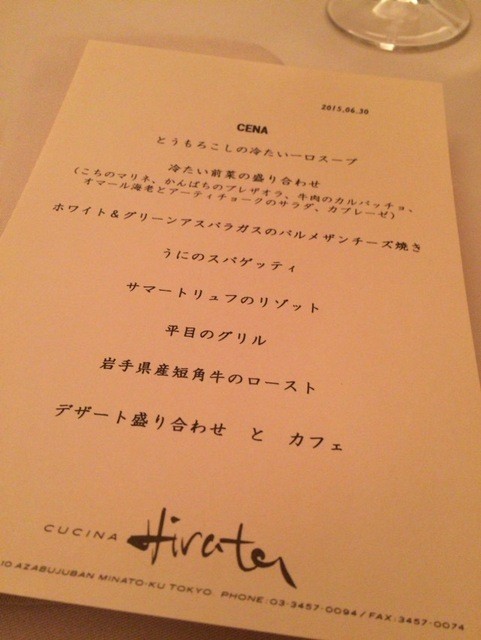 2015.06.30
CENA
とうもろこしの冷たい一口スープ
冷たい前菜の盛り合わせ
(こちのマリネ、かんぱちのブレザオラ、牛肉のカルパッチョ、
オマール海老とアーティチョークのサラダ、カプレーゼ)
ホワイト&グリーンアスパラガスのパルメザンチーズ焼き
うにのスパゲッティ
サマートリュフのリゾット
平目のグリル
岩手県産短角牛のロースト
デザート盛り合わせ と カフェ
CUCINA Hirata
10 AZABUJUBAN MINATO-KU TOKYO. PHONE:03-3457-0094/FAX:3457-0074